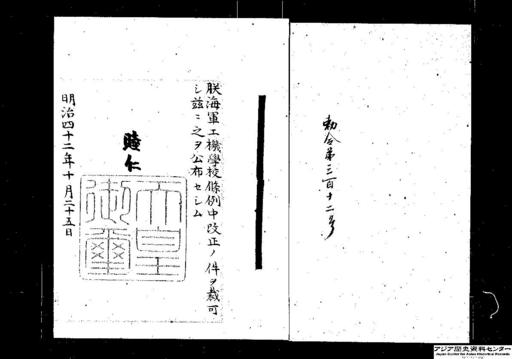 勅令第三百十二号
朕海軍工機學校條例中改正ノ件ヲ裁可
シ茲ニ之ヲ公布セシム
睦仁
天皇御璽
明治四十二年十月二十五日
アジア歴史資料センター
Japan Center for Asian Historical Records